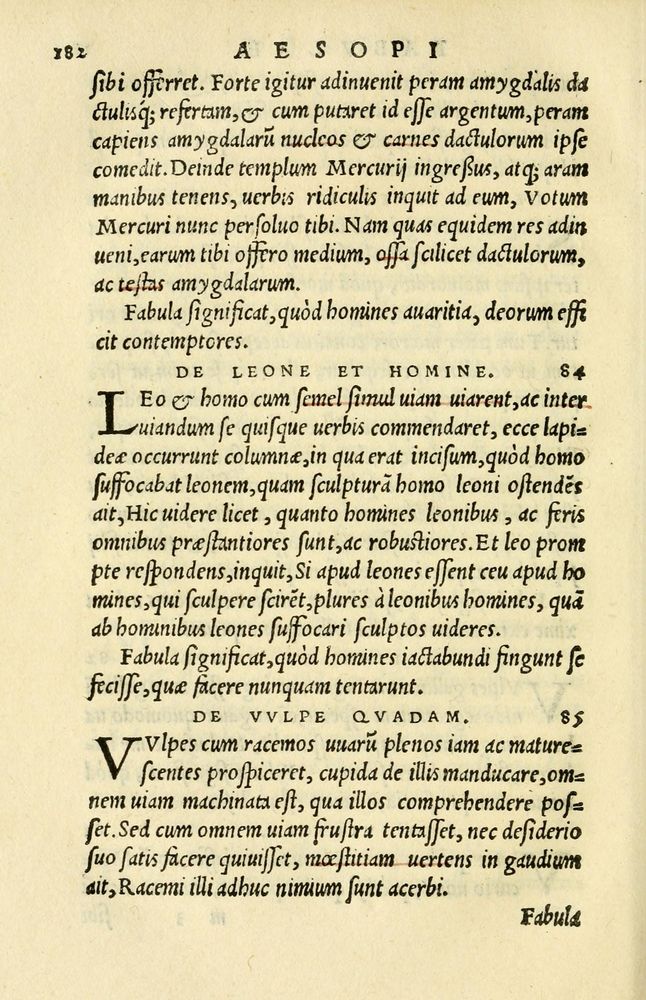 182 AESOPI
sibi offerret. Forte igitur adinuenit peram amygdalis da
ctulisq́; refertam, & cum putaret id esse argentum, peram
capiens amygdalarũ nucleos & carnes dactulorum ipse
comedit. Deinde templum Mercurij ingreßus, atq; aram
manibus tenens, uerbis ridiculis inquit ad eum, Votum
Mercuri nunc persoluo tibi. Nam quas equidem res adin
ueni, earum tibi offero medium, ossa scilicet dactulorum,
ac testas amygdalarum.
Fabula significat, quòd homines auaritia, deorum effi
cit contemptores.
DE LEONE ET HOMINE. 84
LEo & homo cum semel simul uiam uiarent, ac inter
uiandum se quisque uerbis commendaret, ecce lapi=
deæ occurrunt columnæ, in qua erat incisum, quòd homo
suffocabat leonem, quam sculpturã homo leoni ostendẽs
ait, Hic uidere licet, quanto homines leonibus, ac feris
omnibus præstantiores sunt, ac robustiores. Et leo prom
pte respondens, inquit, Si apud leones essent ceu apud ho
mines, qui sculpere scirẽt, plures à leonibus homines, quã
ab hominibus leones suffocari sculptos uideres.
Fabula significat, quòd homines iactabundi fingunt se
fecisse, quæ facere nunquam tentarunt.
DE VVLPE QVADAM. 85
VVlpes cum racemos uuarũ plenos iam ac mature=
scentes prospiceret, cupida de illis manducare, om=
nem uiam machinata est, qua illos comprehendere pos=
set. Sed cum omnem uiam frustra tentasset, nec desiderio
suo satis facere quiuisset, mœstitiam uertens in gaudium
ait, Racemi illi adhuc nimium sunt acerbi.
Fabula